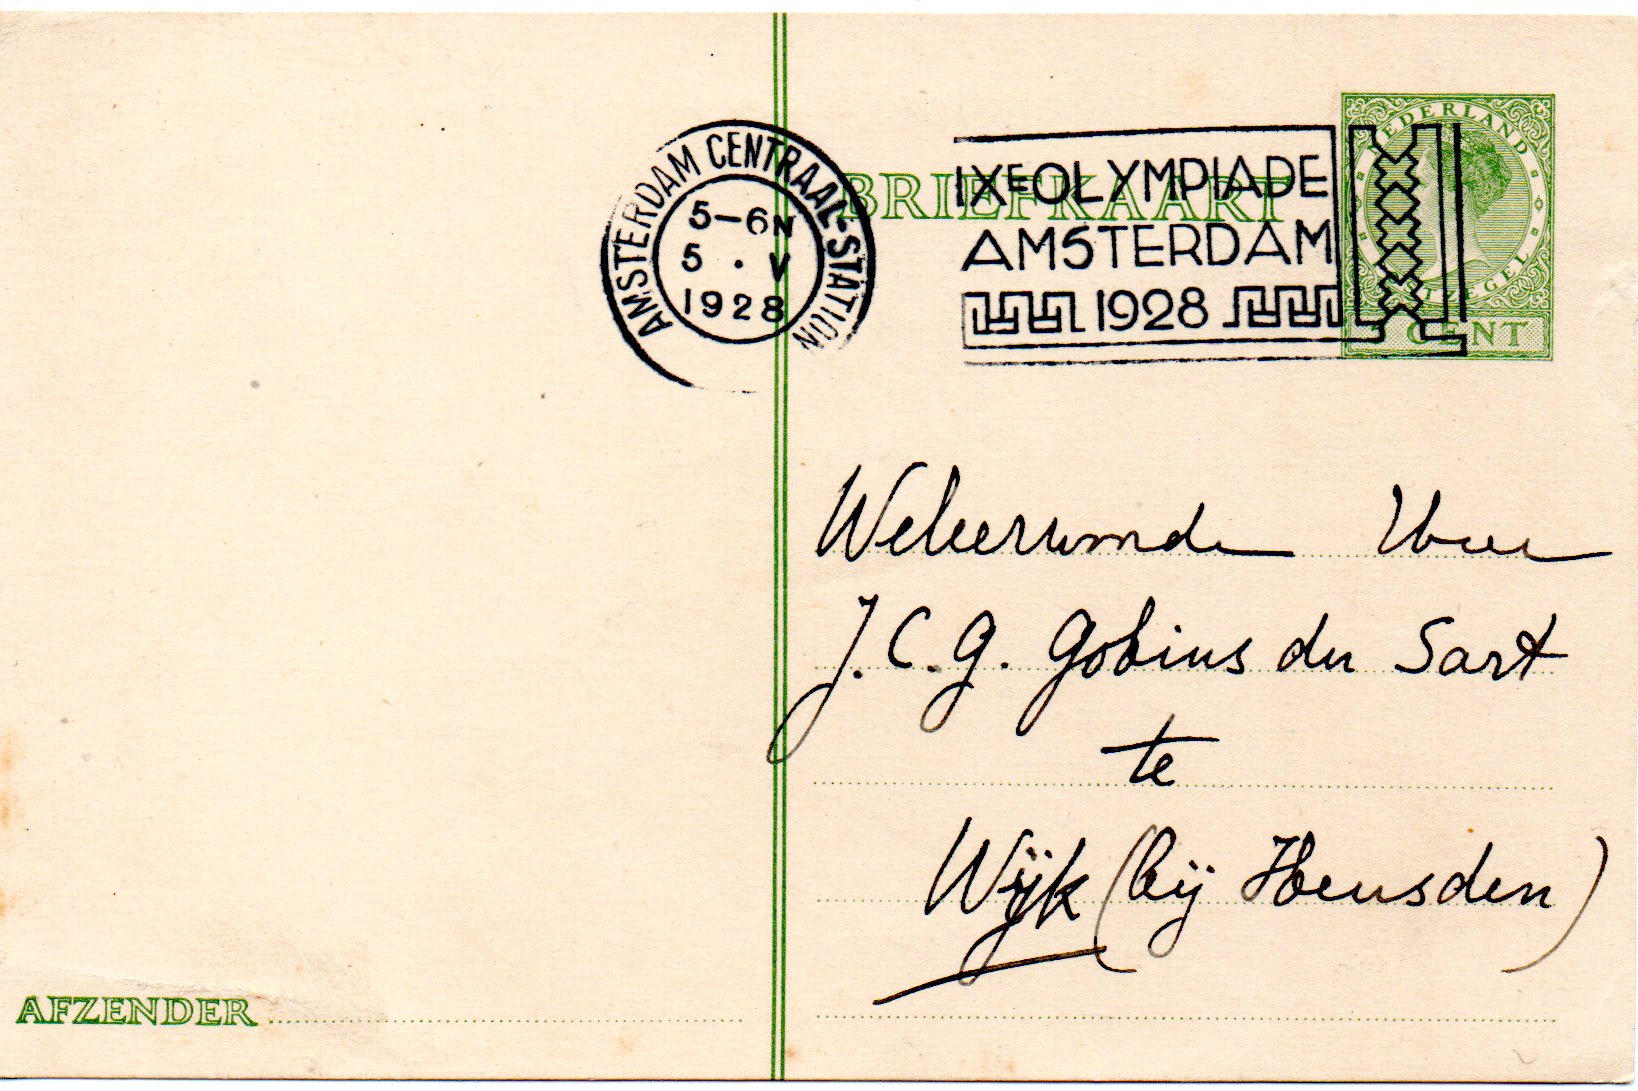 AMSTERDAM CENTRAAL-STATION
5-6N
5 . V
1928
BRIEFKAART
IXE OLYMPIADE
AMSTERDAM
1928
NEDERLAND
CENT
Weleerwaarde Heer
J. C. G. Gobius du Sart
te
Wijk (bij Heusden)
AFZENDER